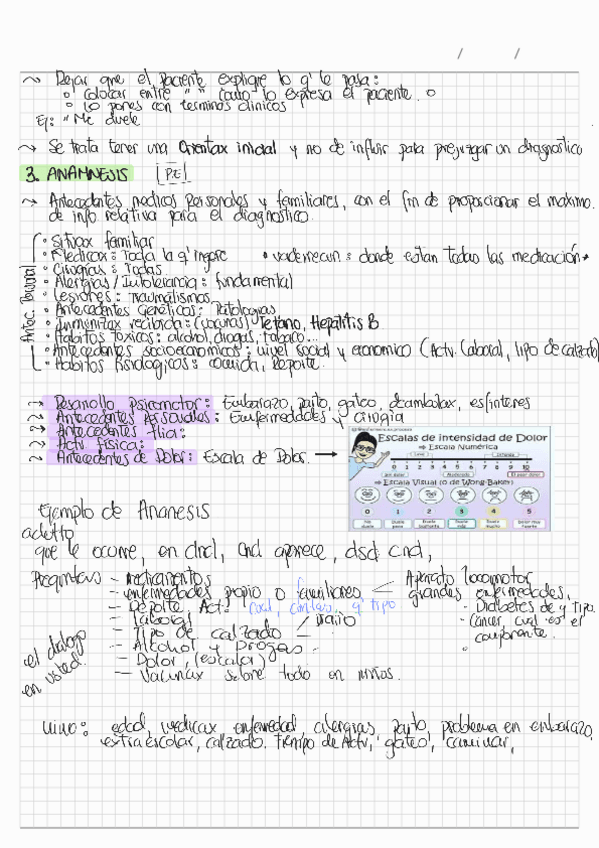 / /
~> Dejar que el paciente explique lo q' le pasa:
o Colocar entre " " como lo expresa el paciente. o
o Lo pones con terminos clinicos
Ej: "Me duele
~> Se trata tener una Orientax inicial y no de influir para prejuzgar un diagnostico
3. ANAMNESIS [PE]
~> Antecedentes medicos personales y familiares, con el fin de proporcionar el maximo.
de info relativa para el diagnostico.
Antec. Personal
• Situax familiar
• Medicax: Toda la q' ingre • vademecun: donde estan todas las medicación
• Cirugias: Todas
• Alergias/Intolerancia: fundamental
• Lesiones: Traumatismos
• Antecedentes Geneticos: Patologias
• Inmunizax recibida: (vacunas) Tetano, Hepatitis B
• Habitos toxicos: alcohol, drogas, tabaco...
• Antecedentes socioeconomicos: nivel social y economico (Activ. laboral, tipo de calzado)
• Habitos fisiologicos: comida, deporte.
~> Desarrollo Psicomotor: Embarazo, parto, gateo, deambulax, esfinteres
~> Antecedentes Personales: Enfermedades y cirugia
~> Antecedentes flia:
~> Activ fisica:
~> Antecedentes de Dolor: Escala de Dolor. →
Escalas de intensidad de Dolor
⇒ Escala Numérica
0 1 2 3 4 5 6 7 8 9 10
⇒ Escala Visual (o de Wong-Baker)
0 1 2 3 4 5
Ejemplo de Ananesis
adulto
que le ocurre, en dnd, Cnd aparece, dsd cnd,
Preguntas – medicamentos
– enfermedades propio o familiares < Aparato locomotor
grandes enfermedades,
– Deporte. Act: cual, cuantas, q' tipo
- Diabetes de q tipo.
– Laboral
- Cancer, cual es el
– Tipo de calzado
– Alcohol y Drogas
– Dolor, (escala)
– Vacunax sobre todo en niños.
el dialogo
en usted.
niño: edad, medicax enfermedad, alergias, parto, problema en embarazo,
extra escolar, calzado. Tiempo de Activ, gateo, caminar,